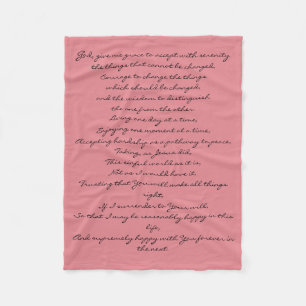 God, give me grace to accept with serenity
the things that cannot be changed,
Courage to change the things
which should be changed,
and the wisdom to distinguish
the one from the other.
Living one day at a time,
Enjoying one moment at a time,
Accepting hardship as a pathway to peace,
Taking, as Jesus did,
This sinful world as it is,
Not as I would have it,
Trusting that You will make all things
right,
If I surrender to Your will,
So that I may be reasonably happy in this
life,
And supremely happy with You forever in
the next.